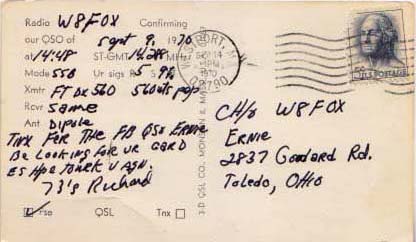 Radio W8FOX Confirming
our QSO of Sept 9, 1970
at 14:48 ST-GMT 14.288 MHz
Mode SSB Ur sigs R 5 S 9+
Xmtr FT DX 560 560wts pep
Rcvr same
Ant Dipole
TNX FOR THE FB QSO ERNIE
Be LOOKING FOR UR CARD
ES HPE TO WRK U AGN.
73's Richard
rse QSL Tnx
WESTPORT, MA
SEP 14
PM
1970
02790
U.S. POSTAGE
CH/O W8FOX
ERNIE
2837 Goddard Rd.
Toledo, Ohio